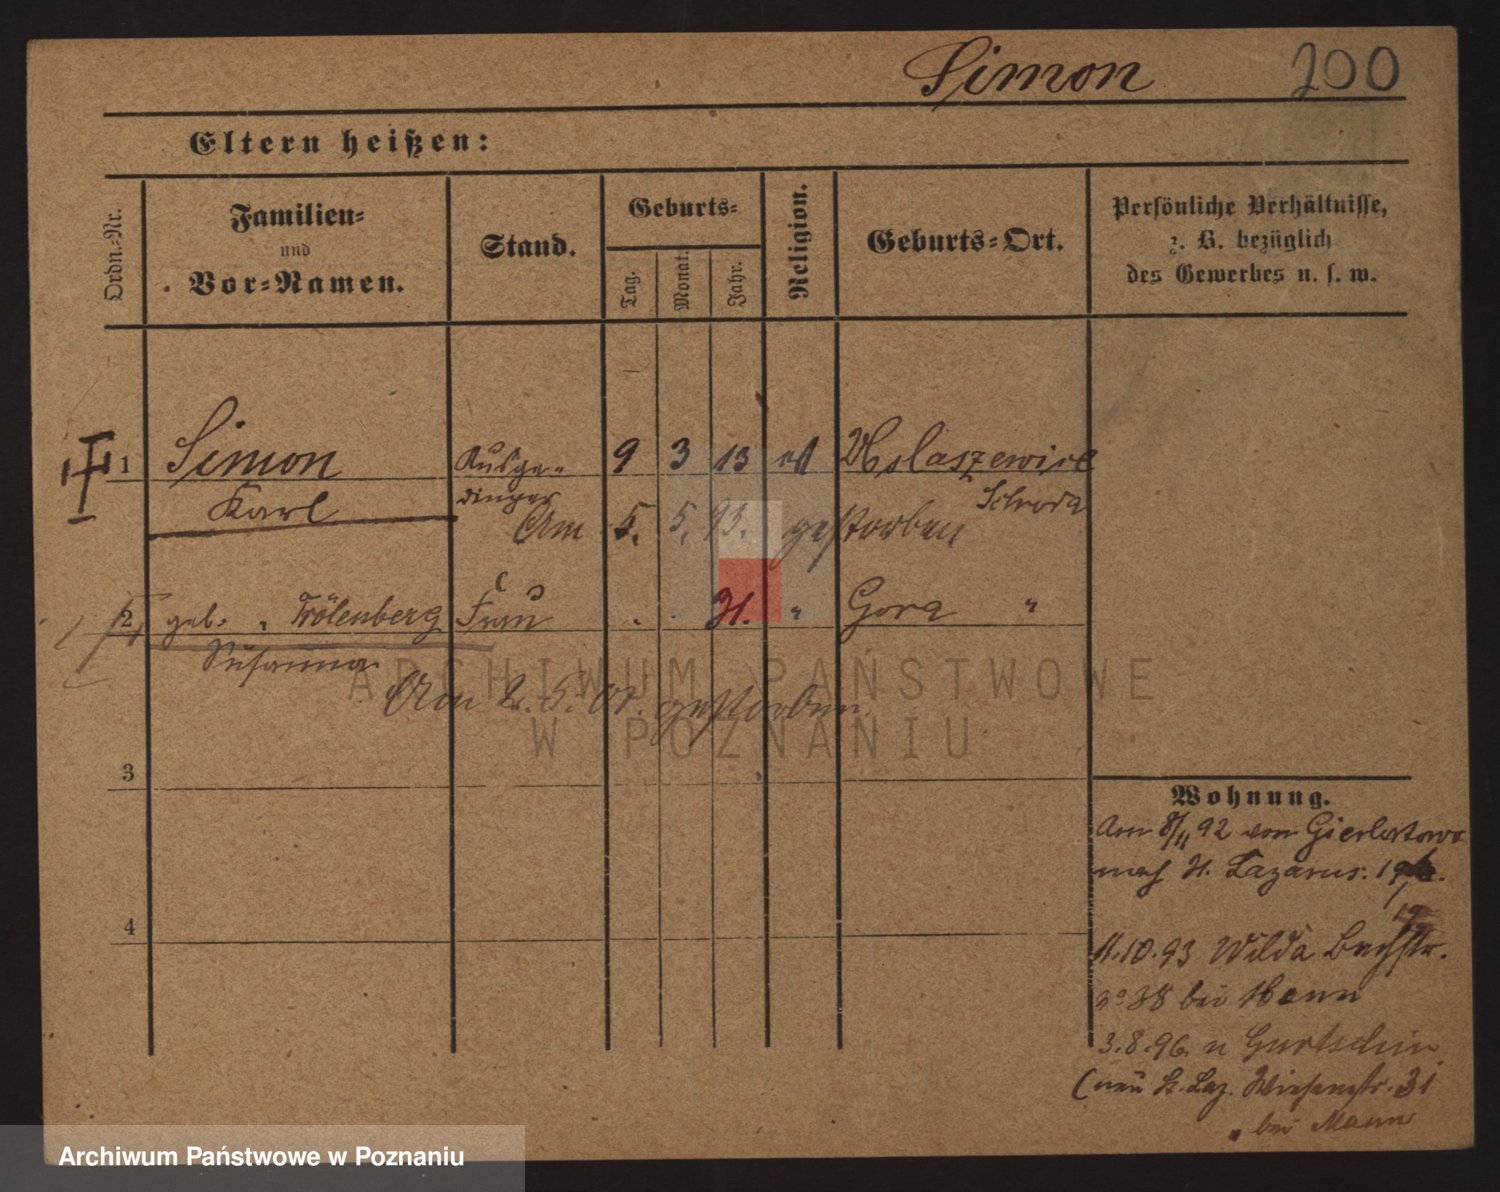 Simon 200
Eltern heißen:
Ordn.-Nr.
Familien-
und
Vor-Namen.
Stand.
Geburts-
Tag.
Monat.
Jahr.
Religion.
Geburts-Ort.
Persönliche Verhältnisse,
z. B. bezüglich
des Gewerbes u. s. w.
1 Simon Ausge- 9 3 13
Karl dinger Schroda
Am 5. 5. 93. gestorben
2 geb. Frau " Gora "
Susanna
Am 2. 5. 01. gestorben
3
4
Wohnung.
Am 8/11 92 von
nach St. Lazarus.
11.10.93 Wilda Bachstr.
38 bei
3.8.96 n Gurtschin
(neu St. Laz. Wiesenstr. 31
bei Mann
ARCHIWUM PAŃSTWOWE
W POZNANIU
Archiwum Państwowe w Poznaniu